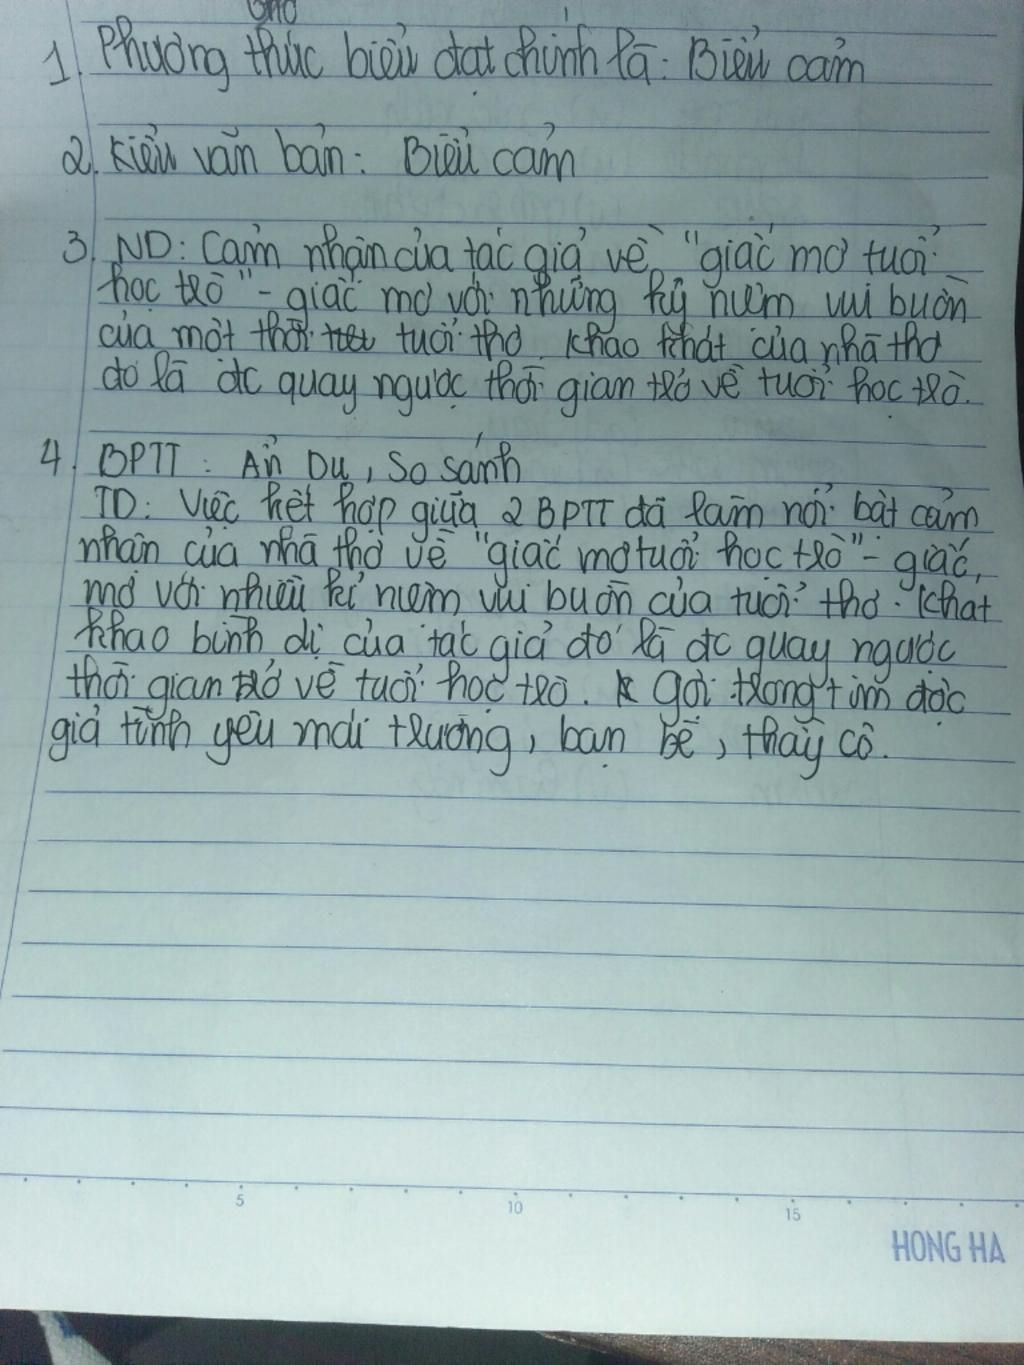 1. Phương thức biểu đạt chính là: Biểu cảm
2. Kiểu văn bản: Biểu cảm
3. ND: Cảm nhận của tác giả về "giấc mơ tuổi
học trò" - giấc mơ với những kỷ niệm vui buồn
của một thời tuổi thơ. Khao khát của nhà thơ
đó là đc quay ngược thời gian trở về tuổi học trò.
4. BPTT: Ẩn Dụ, So sánh
TD: Việc kết hợp giữa 2 BPTT đã làm nổi bật cảm
nhận của nhà thơ về "giấc mơ tuổi học trò" - giấc
mơ với nhiều kỉ niệm vui buồn của tuổi thơ. Khát
khao bình dị của tác giả đó là đc quay ngược
thời gian trở về tuổi học trò. Gợi trong tim độc
giả tình yêu mái trường, bạn bè, thầy cô.
5 10 15
HONG HA